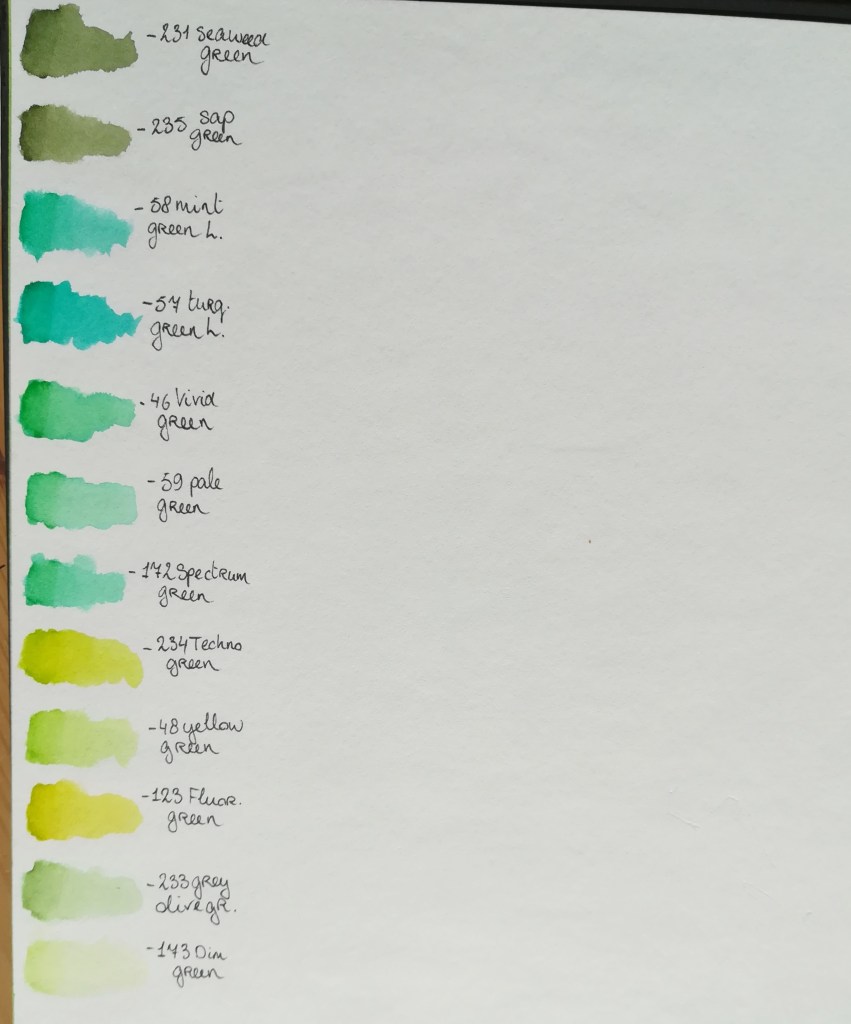 -231 Seaweed
green
-235 Sap
green
-58 mint
green L.
-57 turq.
green L.
-46 Vivid
green
-59 pale
green
-172 Spectrum
green
-234 Techno
green
-48 yellow
green
-123 Fluor.
green
-233 grey
olive gr.
-173 Dim
green